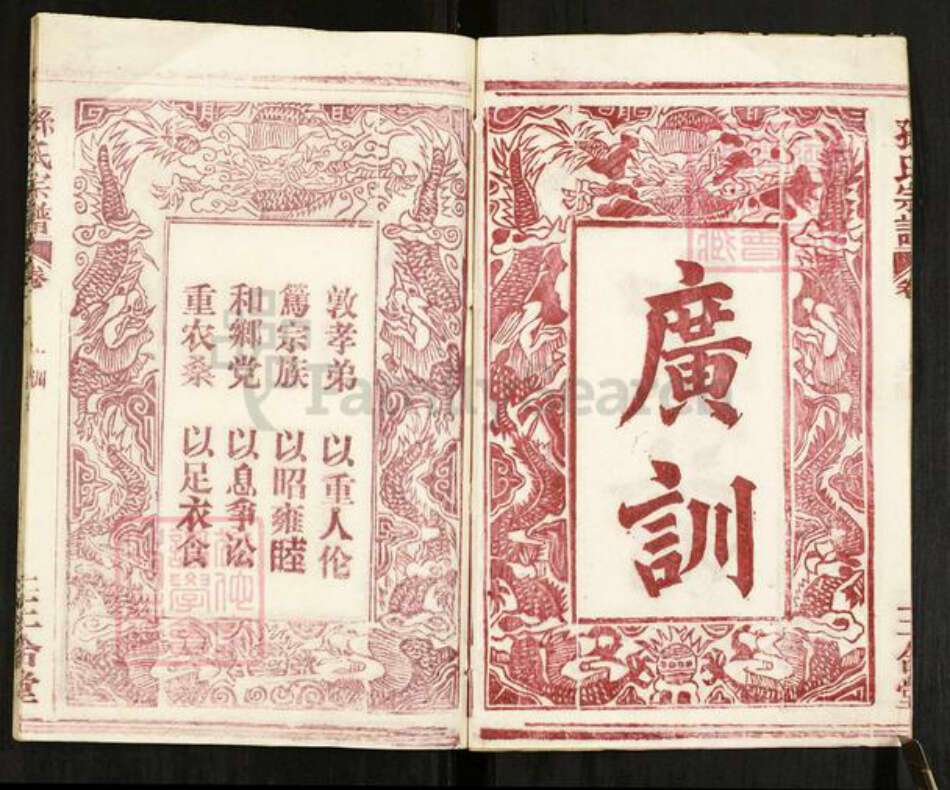 廣訓
敦孝弟 以重人伦
篤宗族 以昭雍睦
和鄉党 以息争讼
重农桑 以足衣食
孫氏宗譜
孫氏宗譜 卷
三合堂
FamilySearch